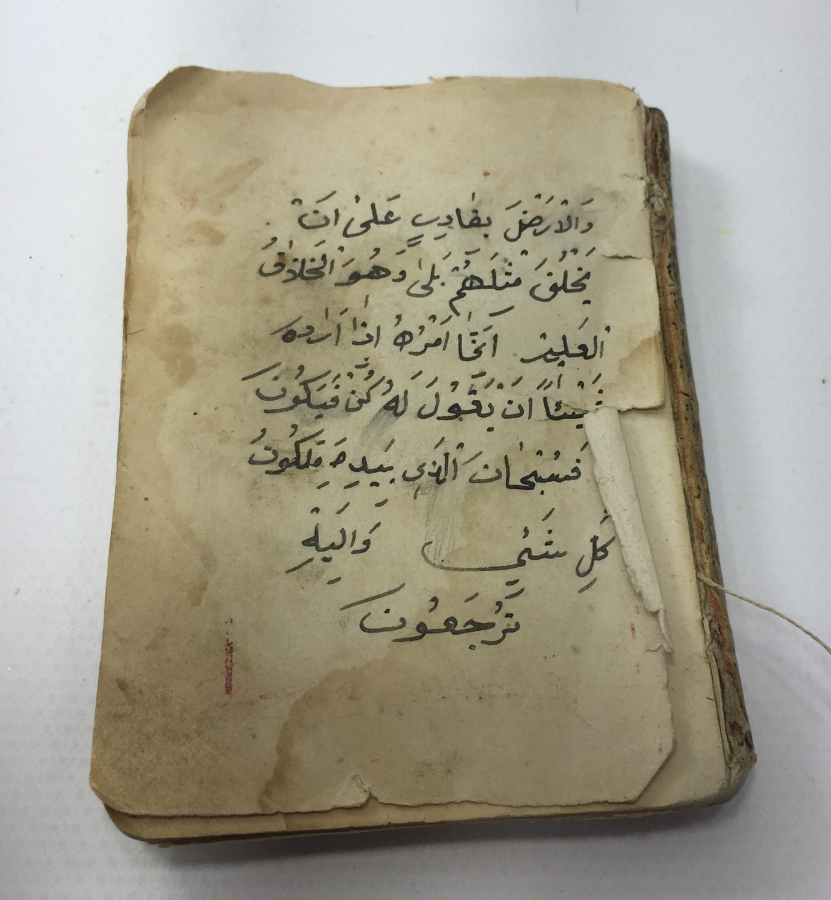 وَالْاَرْضَ بِقَادِرٍ عَلٰى اَنْ
يَخْلُقَ مِثْلَهُمْ بَلٰى وَهُوَ الْخَلَّاقُ
الْعَلِيمُ اِنَّمَا اَمْرُهُ اِذَا اَرَادَهُ
شَيْئًا اَنْ يَقُولَ لَهُ كُنْ فَيَكُونُ
فَسُبْحَانَ الَّذِي بِيَدِهِ مَلَكُوتُ
كُلِّ شَيْءٍ وَاِلَيْهِ
تُرْجَعُونَ